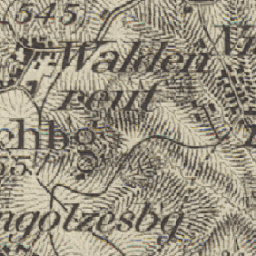 545
Walden
reut
chbg
55
ngolzesbg